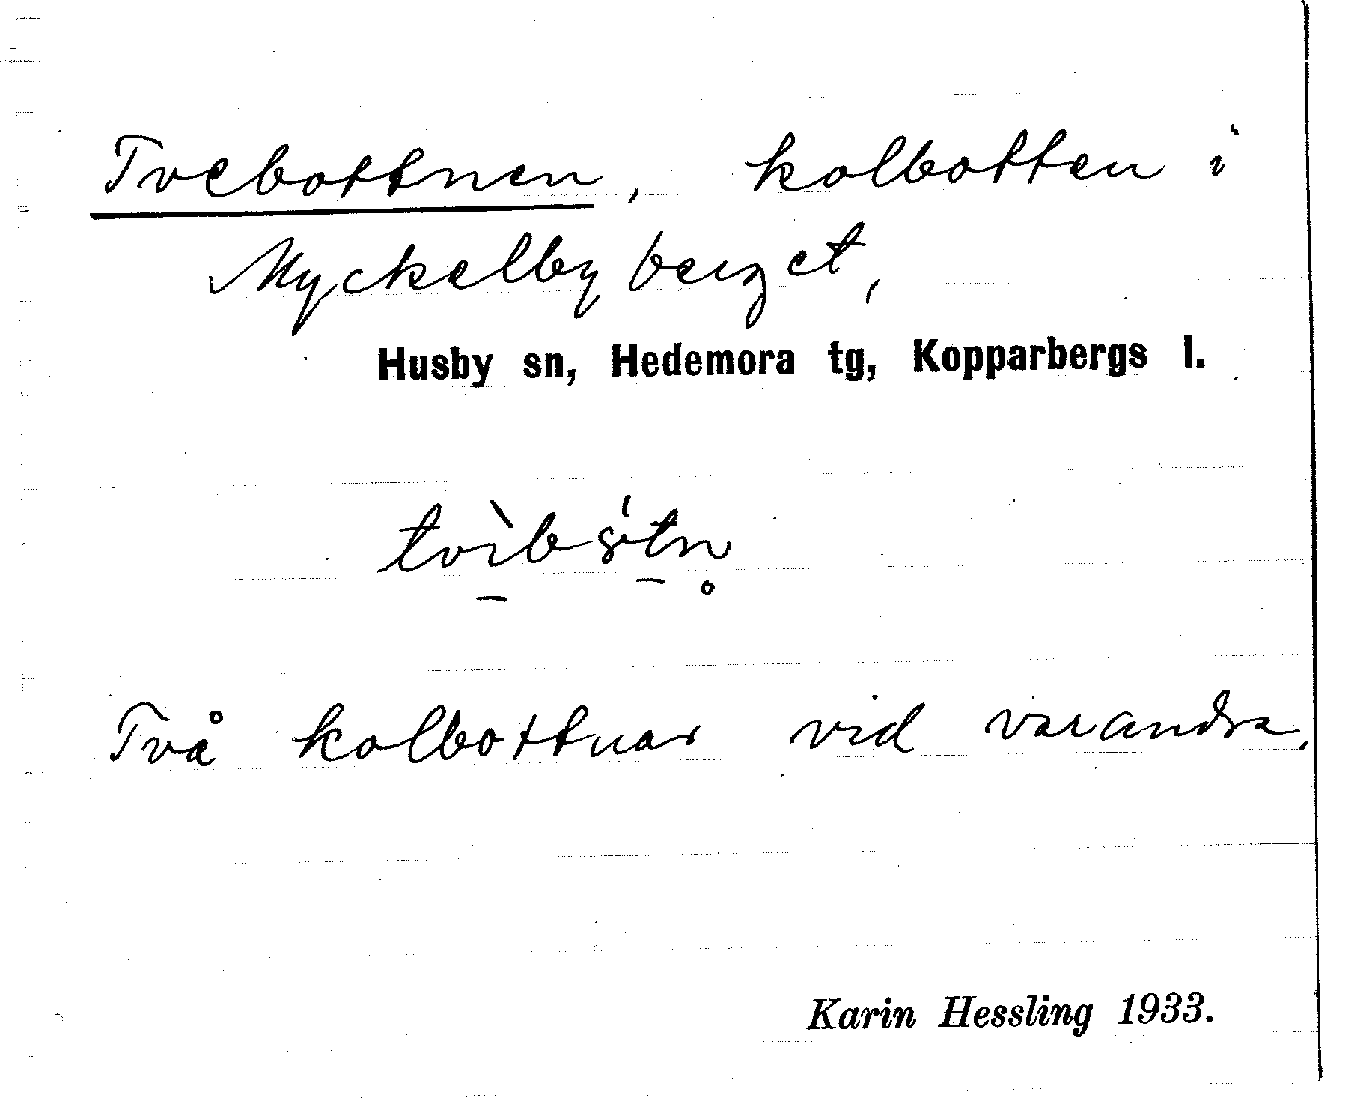 Tvebottnen, kolbotten i
Myckelbyberget,
Husby sn, Hedemora tg, Kopparbergs l.
Två kolbottnar vid varandra.
Karin Hessling 1933.